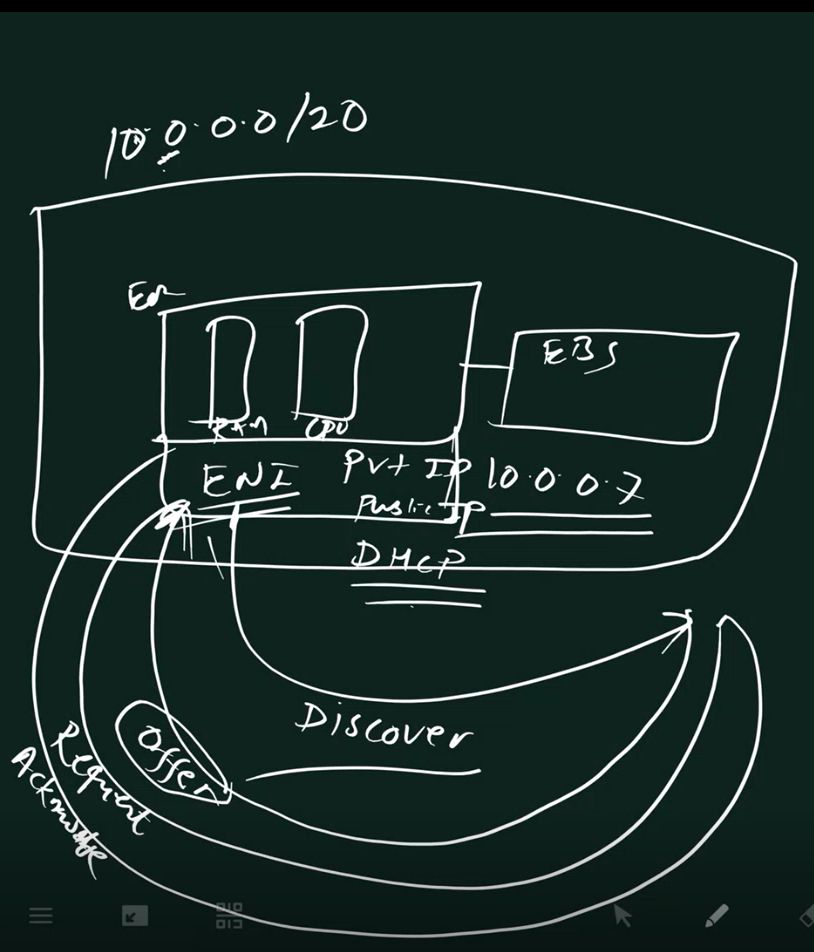 10.0.0.0/20
EC2
EBS
RAM
CPU
ENI
Pvt IP 10.0.0.7
Public IP
DHCP
Discover
Offer
Request
Acknowledge